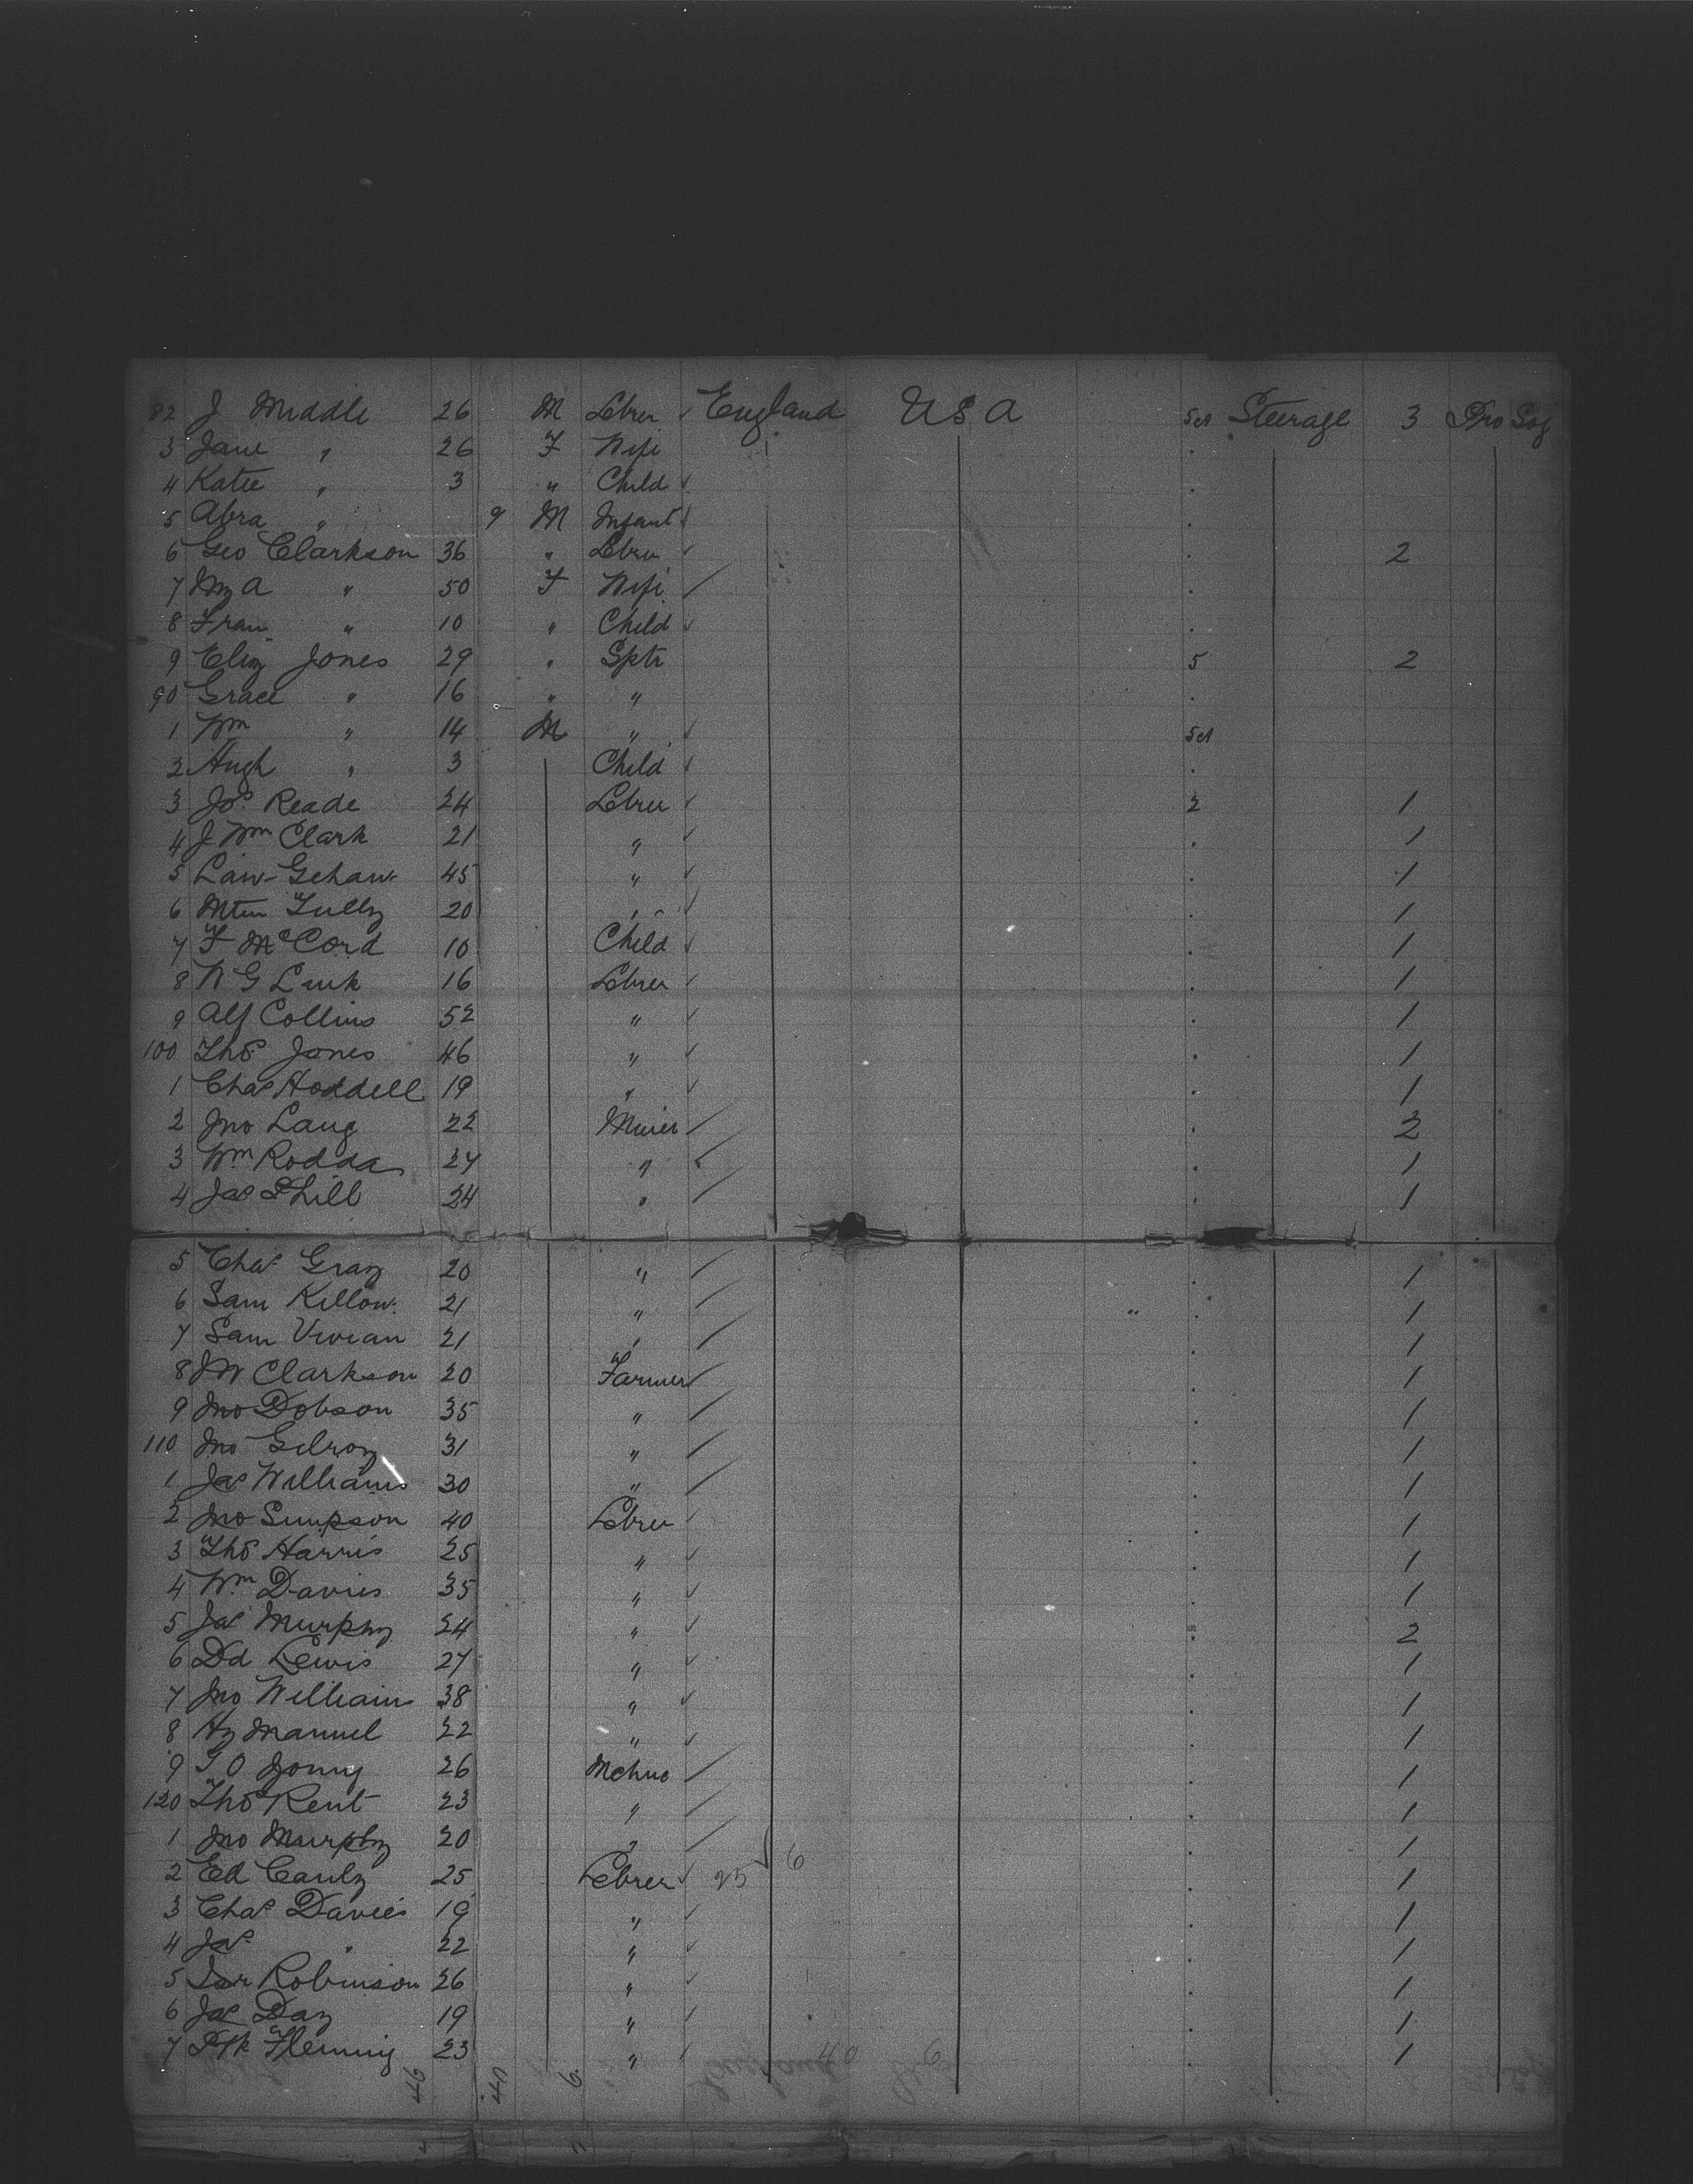 82 J Middle 26 M Lbrer England USA Set Steerage 3 Pro Soj
3 Jane " 26 F Wife
4 Katie " 3 " Child
5 Abra " 9 M Infant
6 Geo Clarkson 36 " Lbrer 2
7 My A " 50 F Wife
8 Fran " 10 " Child
9 Eliz Jones 29 " Sptr 5 2
90 Grace " 16 " "
1 Wm " 14 M " Set
2 Hugh " 3 Child
3 Jos Reade 24 Lbrer 2 1
4 J Wm Clark 21 " 1
5 Law Gehaw 45 " 1
6 Mtin Tully 20 " 1
7 F McCord 10 Child 1
8 W G Link 16 Lbrer 1
9 Alf Collins 52 " 1
100 Thos Jones 46 " 1
1 Chas Hoddell 19 " 1
2 Jno Lang 22 Miner 2
3 Wm Rodda 24 " 1
4 Jas Phill 24 " 1
5 Chas Gray 20 " 1
6 Sam Killow 21 " 1
7 Sam Vivian 21 " 1
8 JW Clarkson 20 Farmer 1
9 Jno Dobson 35 " 1
110 Jno Gilroy 31 " 1
1 Jas Williams 30 " 1
2 Jno Simpson 40 Lbrer 1
3 Thos Harris 25 " 1
4 Wm Davies 35 " 1
5 Jas Murphy 24 " 2
6 Dd Lewis 27 " 1
7 Jno William 38 " 1
8 Hy Manuel 22 " 1
9 26 Mchnc 1
120 Thos Kent 23 " 1
1 Jno Murphy 20 " 6 1
2 Ed Cauly 25 Lbrer 25 1
3 Chas Davies 19 " 1
4 Jas " 22 " 1
5 Isr Robinson 26 " 1
6 Jas Day 19 " 1
7 Ptk Fleming 23 " 40 6 1
46 40 6